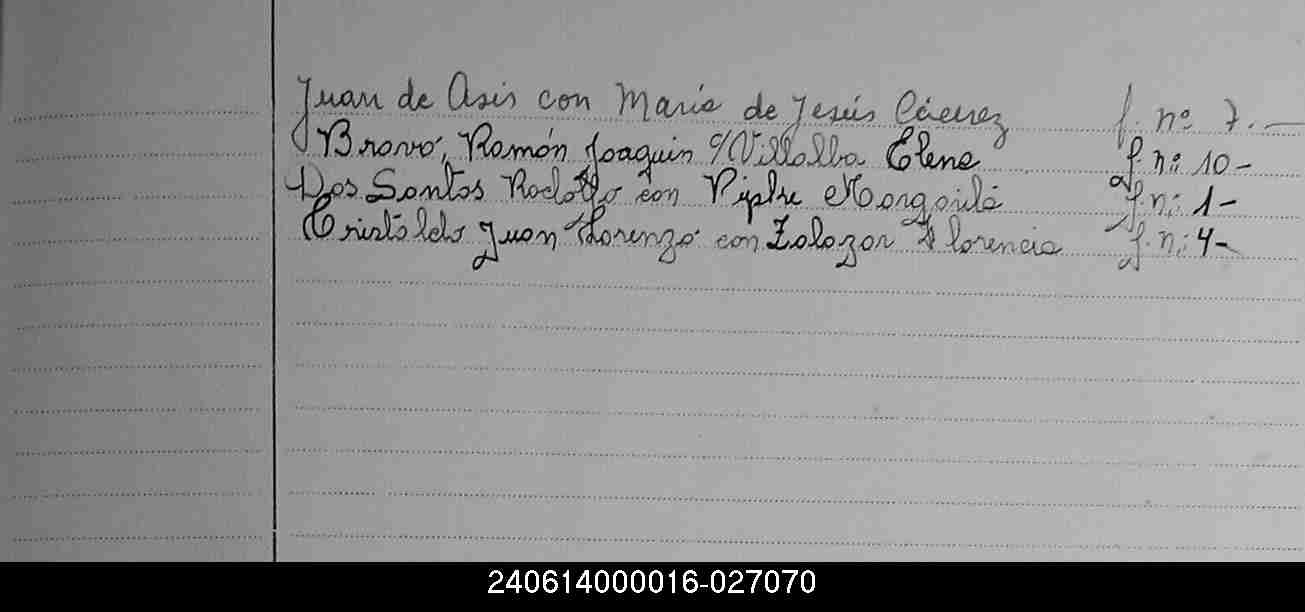 Juan de Asis con Maria de Jesús Cácerez f. nº 7.—
Bravo, Ramón Joaquin c/ Villalba Elena f. n: 10-
Dos Santos Rodolfo con Margarita f. n: 1-
Cristaldo Juan Lorenzo con Zalazar Florencia f. n: 4-
240614000016-027070